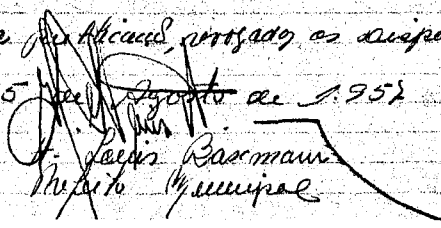 publicação, revogadas as dispo
5 de Agosto de 1.957
Louis Baxmann
Prefeito Municipal